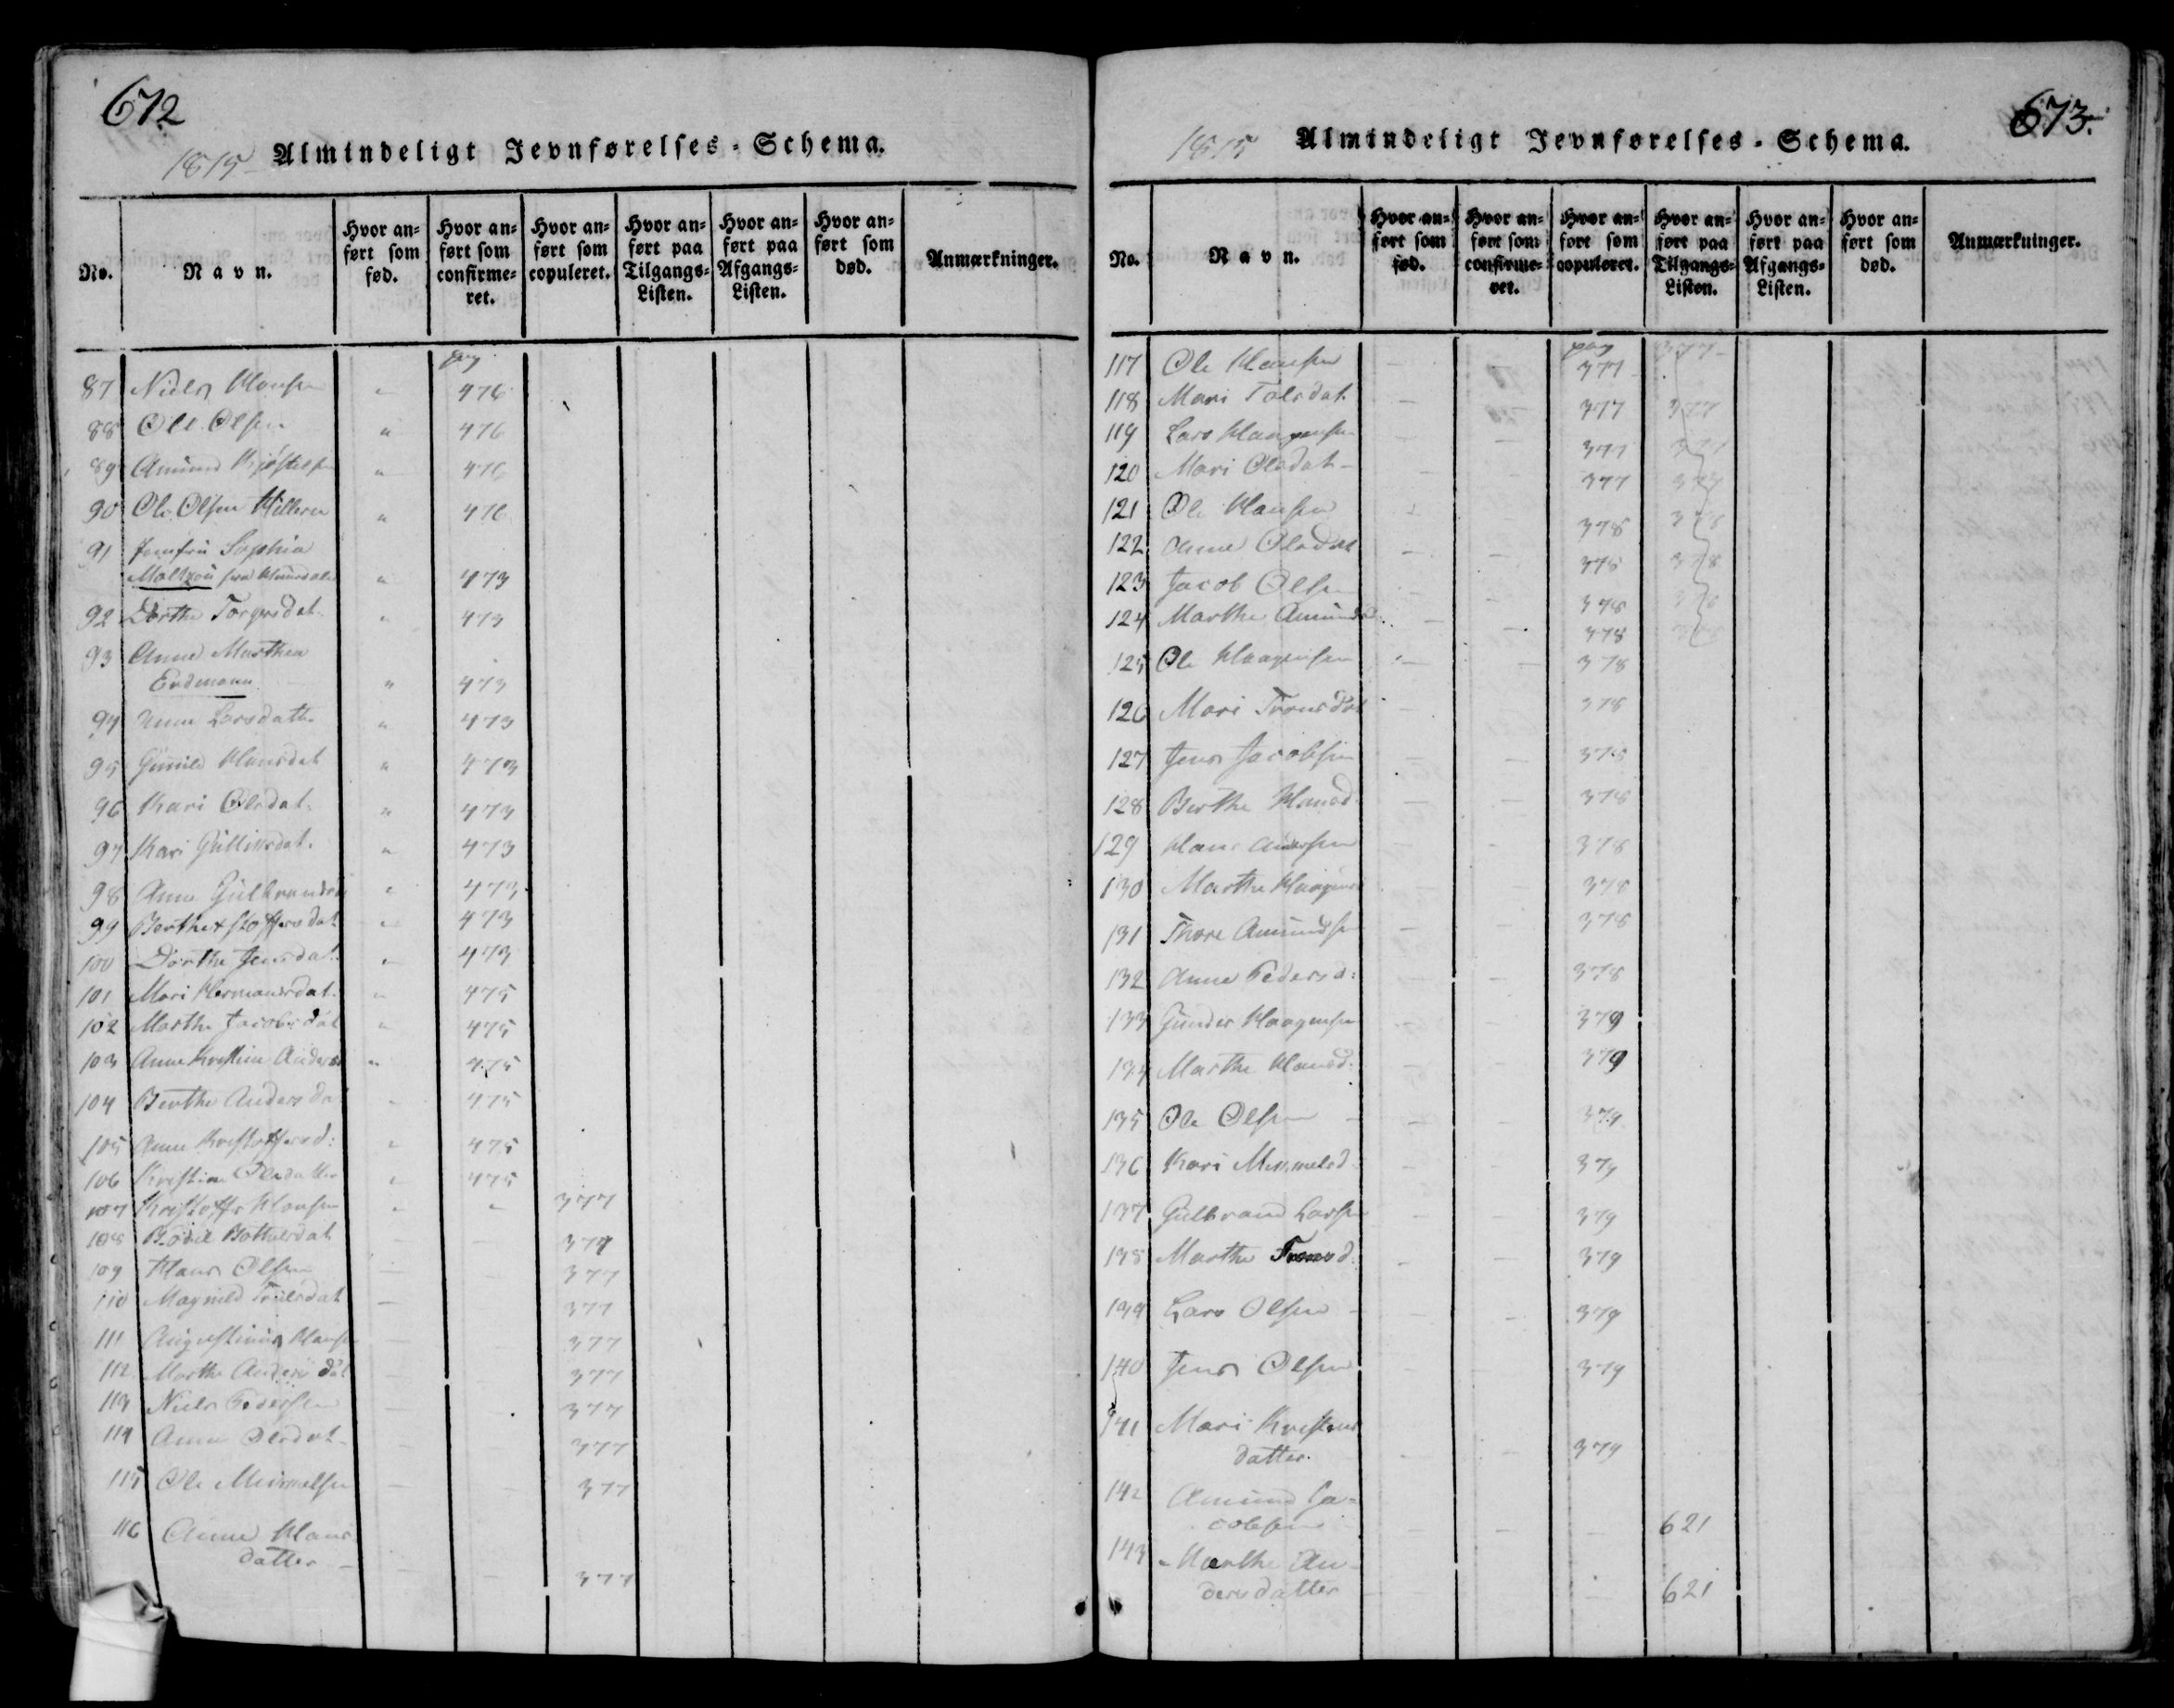 672
1815 - Almindeligt Jevnførelses-Schema.
No. Navn. Hvor anført som fød. Hvor anført som confirmeret. Hvor anført som copuleret. Hvor anført paa Tilgangs-Listen. Hvor anført paa Afgangs-Listen. Hvor anført som død. Anmærkninger.
pag
87 Niels Hansen " 476
88 Ole Olsen " 476
89 Amund Kjøstelsen " 476
90 Ole Olsen Hilleren " 476
91 Jomfru Sophia
Moltzou fra " 473
92 Dorthe Torgersdat. " 473
93 Anne Marthea
Erdmann " 473
94 Anne Larsdatt. " 473
95 Gunnild Hansdat " 473
96 Kari Olsdat. " 473
97 Kari Gulliksdat. " 473
98 Anne Gulbransd " 473
99 Berthe Kstoffersdat " 473
100 Dorthe Jensdat. " 473
101 Mari Hermansdat. " 475
102 Marthe Jacobsdat " 475
103 Anne Kristine Andersd " 475
104 Berthe Andersda " 475
105 Anne Kristoffersd: " 475
106 Kristine Olsdatter " 475
107 Kristoffer Hansen " " 377
108 Bodil Bottulsdat — — 377
109 Hans Olsen — — 377
110 Magnild Trulsdat — 377
111 Augustinus Hansen — 377
112 Marthe Andersdat — — 377
113 Niels Pedersen — — 377
114 Anne Olsdat — — 377
115 Ole Mummelsen — — 377
116 Anne Hans
datter — — — 377
673.
1815 Almindeligt Jevnførelses-Schema.
No. Navn. Hvor anført som fød. Hvor anført som confirmeret. Hvor anført som copuleret. Hvor anført paa Tilgangs-Listen. Hvor anført paa Afgangs-Listen. Hvor anført som død. Anmærkninger.
pag
117 Ole Hansen — 377 377
118 Mari Tolsdat. — 377 377
119 Lars Haagensen — — 377 377
120 Mari Olsdat — — — 377 377
121 Ole Hansen — 378 378
122 Anne Olsdat — — 378 378
123 Jacob Olsen — — 378 378
124 Marthe Amundsd. — — 378
125 Ole Haagensen — — 378
126 Mari Tronsdat — 378
127 Jens Jacobsen — — 378
128 Berthe Hansd. — — 378
129 Hans Andersen — — 378
130 Marthe Haagensd — — 378
131 Thore Amundsen — — 378
132 Anne Pedersd: — — 378
133 Gunder Haagensen — — 379
134 Marthe Hansd: — — 379
135 Ole Olsen — — — 379
136 Kari Mummelsd. — — 379
137 Gulbrand Larsen — — 379
138 Marthe Tronsd. — — 379
139 Lars Olsen — — 379
140 Jens Olsen — — 379
141 Mari Kristens
datter. — — 379
142 Amund Ja-
cobsen — — — 621
143 Marthe An-
dersdatter — — 621